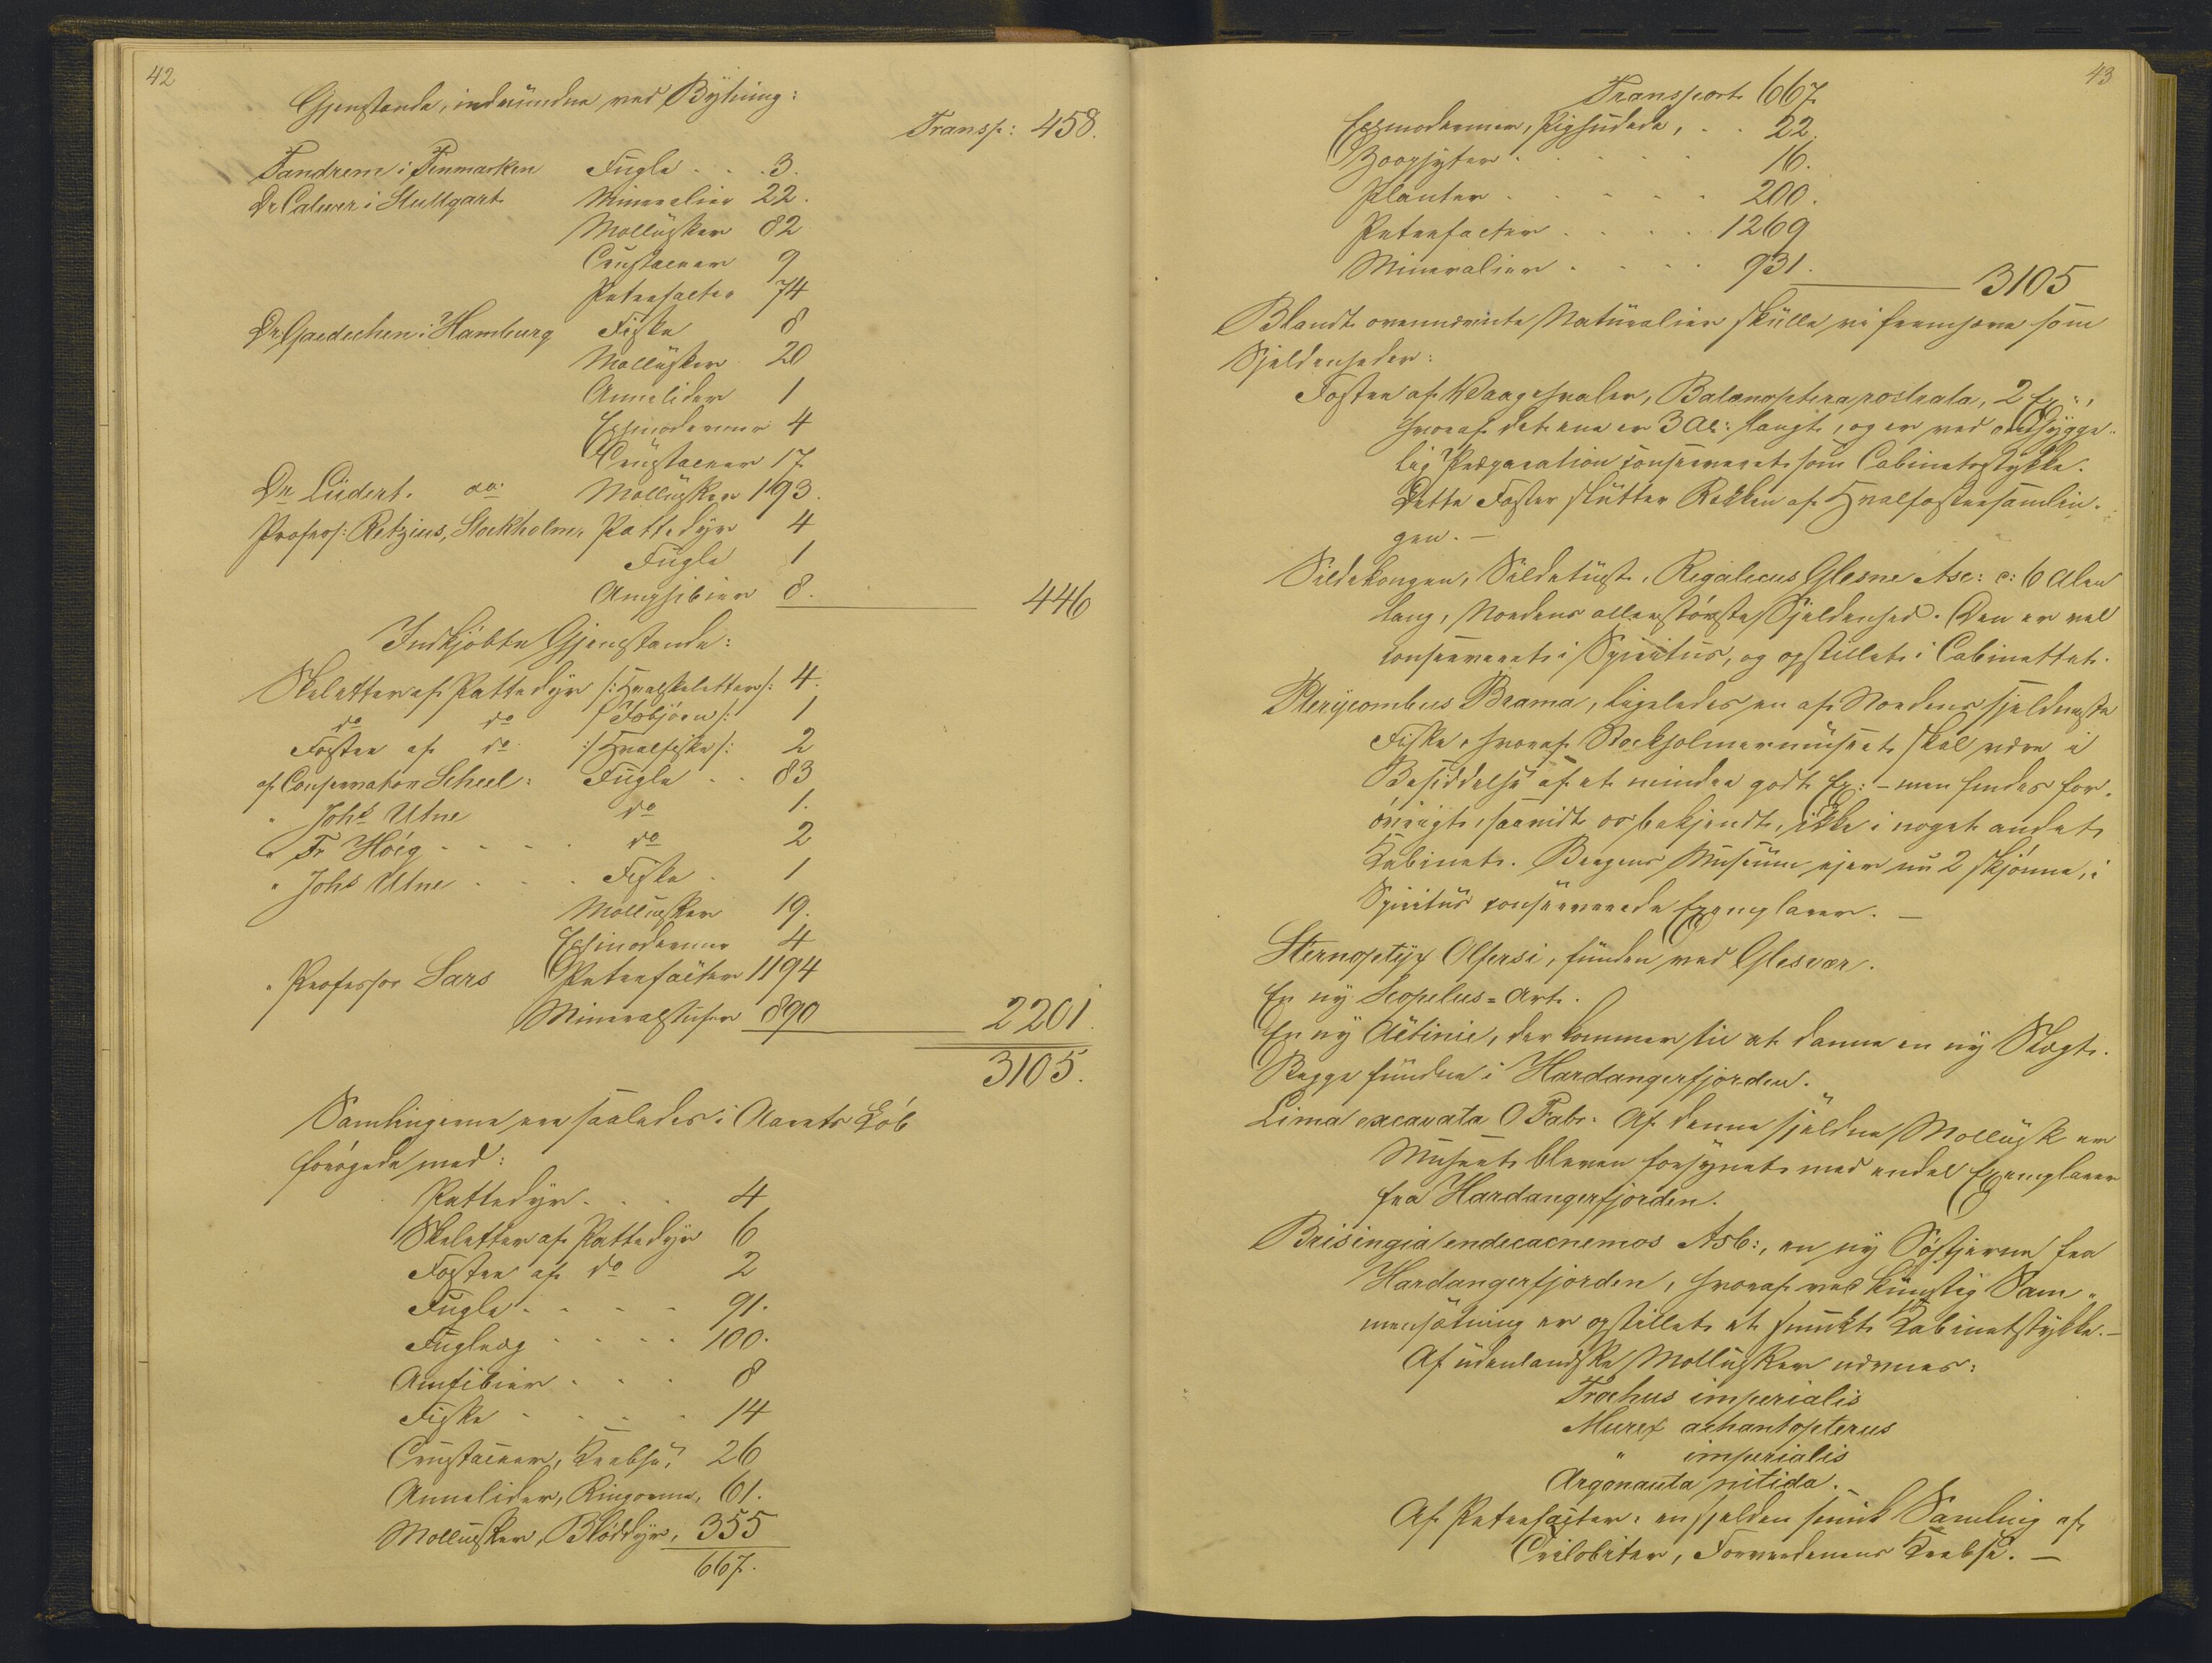 42
Gjenstande, indvundne ved Bytning:
Transp: 458.
Tandrem i Finmarken Fugle . . . 3.
Dr. Calwer i Stuttgart Mineralier 22.
Mollusker 82
Crustaceer 9
Petrefacter 74
Dr. Gaedechen i Hamburg Fiske 8
Mollusker 20
Annelider 1
Echinodermer 4
Crustaceer 17
Dr Lüdert. do: Mollusker 193.
Profess: Retzius, Stockholm, Pattedyr 4
Fugle 1
Amphibier 8.
446
Indkjöbte Gjenstande:
Skeletter af Pattedyr /:Hvalskeletter/: 4.
do do /:Isbjörn/: 1
Foster af do /:Hvalfiske/: 2
af Conservator Scheel: Fugle . . 83
" Johs Utne do 1.
" Fr Höeg . . . . do 2
" Johs Utne . . . Fiske . 1
Mollusker 19.
Echinodermer 4
" Professor Sars Petrefacter 1194
Mineralstufer 890
2201.
3105.
Samlingerne ere saaledes i Aarets Löb
forögede med:
Pattedyr . . . 4
Skeletter af Pattedyr 6
Foster af do 2
Fugle . . . . 91.
Fugleæg . . . . 100.
Amfibier . . . 8
Fiske . . . . 14
Crustaceer, Krebse, 26
Annelider, Ringorme, 61.
Mollusker, Bløddyr, 355
667.
43
Transport 667.
Echinodermer, Pighudede, . . 22.
Zoophyter . . . . . 16.
Planter . . . . . 200.
Petrefacter . . . . 1269
Mineralier . . . . 931.
3105
Blandt ovennævnte Naturalier skulle vi fremhæve som
Sjeldenheder:
Foster af Vaagehvaler, Balænoptera rostrata, 2 Ex.,
hvoraf det ene er 3 Al: langt, og er ved omhygge-
lig Præparation conserveret som Cabinetsstykke.
Dette Foster slutter Rækken af Hvalfostersamlin-
gen. —
Sildekongen, Sildetust, Regalecus Glesne Asc: c: 6 Alen
lang, Nordens allerstörste Sjeldenhed. Den er vel
conserveret i Spiritus, og opstillet i Cabinettet.
Pterycombus Brama, ligeledes en af Nordens sjeldneste
Fiske, hvoraf Stockholmermuseet skal være i
Besiddelse af et mindre godt Ex: – men findes for-
övrigt, saavidt os bekjendt, ikke i noget andet
Kabinet. Bergens Museum ejer nu 2 skjönne, i
Spiritus conserverede Exemplarer. —
Sternoptyx Olfersi, funden ved Glesvær.
En ny Scopelus-Art.
En ny Actinie, der kommer til at danne en ny Slægt.
Begge fundne i Hardangerfjorden.
Lima excavata O Fabr. Af denne sjeldne Mollusk er
Museet bleven forsynet med endel Exemplarer
fra Hardangerfjorden.
Brisingia endecacnemos Asb:, en ny Söstjerne fra
Hardangerfjorden, hvoraf ved kunstig Sam-
mensætning er opstillet et smukt Kabinetstykke. —
Af udenlandske Mollusker nævnes:
Trochus imperialis
Murex achantopterus
" imperialis
Argonauta nitida.
Af Petrefacter: en sjelden smuk Samling af
Trilobiter, Forverdenens Krebse. —